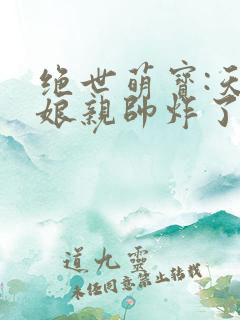 绝世萌寶:
娘親帥炸了
道九靈
未经同意禁止转载